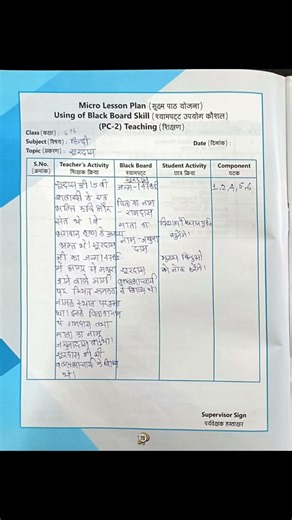 Micro Lesson Plan (सूक्ष्म पाठ योजना)
Using of Black Board Skill (श्यामपट्ट उपयोग कौशल)
(PC-2) Teaching (शिक्षण)
Class (कक्षा) : 6th
Subject (विषय) : हिन्दी
Date (दिनांक) :
Topic (प्रकरण) : सूरदास
S.No. (क्रमांक)
Teacher's Activity शिक्षण क्रिया
Black Board श्यामपट्ट
Student Activity छात्र क्रिया
Component घटक
सूरदास जी 15 वी
शताब्दी के एक
भक्ति कवि और
संत थे । वे
भगवान कृष्ण के
भक्त थे। सूरदास
जी का जन्म 1478 ई
में आगरा से मथुरा
जाने वाले मार्ग
पर स्थित रुनकता
नामक स्थान पर हुआ
था। इनके पिता का नाम
रामदास तथा
माता का नाम
जमुनादास था।
सूरदास जी श्री
वल्लभाचार्य के शिष्य
थे।
सूरदास
जन्म - 1478 ई
पिता का नाम
- रामदास
माता का
नाम - जमुना
दास
सूरदास
वल्लभाचार्य
के शिष्य थे।
विद्यार्थी ध्यानपूर्वक
सुनेंगे।
मुख्य बिन्दुओं
को नोट करेंगे।
1, 2, 4, 5, 6
Supervisor Sign
पर्यवेक्षक हस्ताक्षर